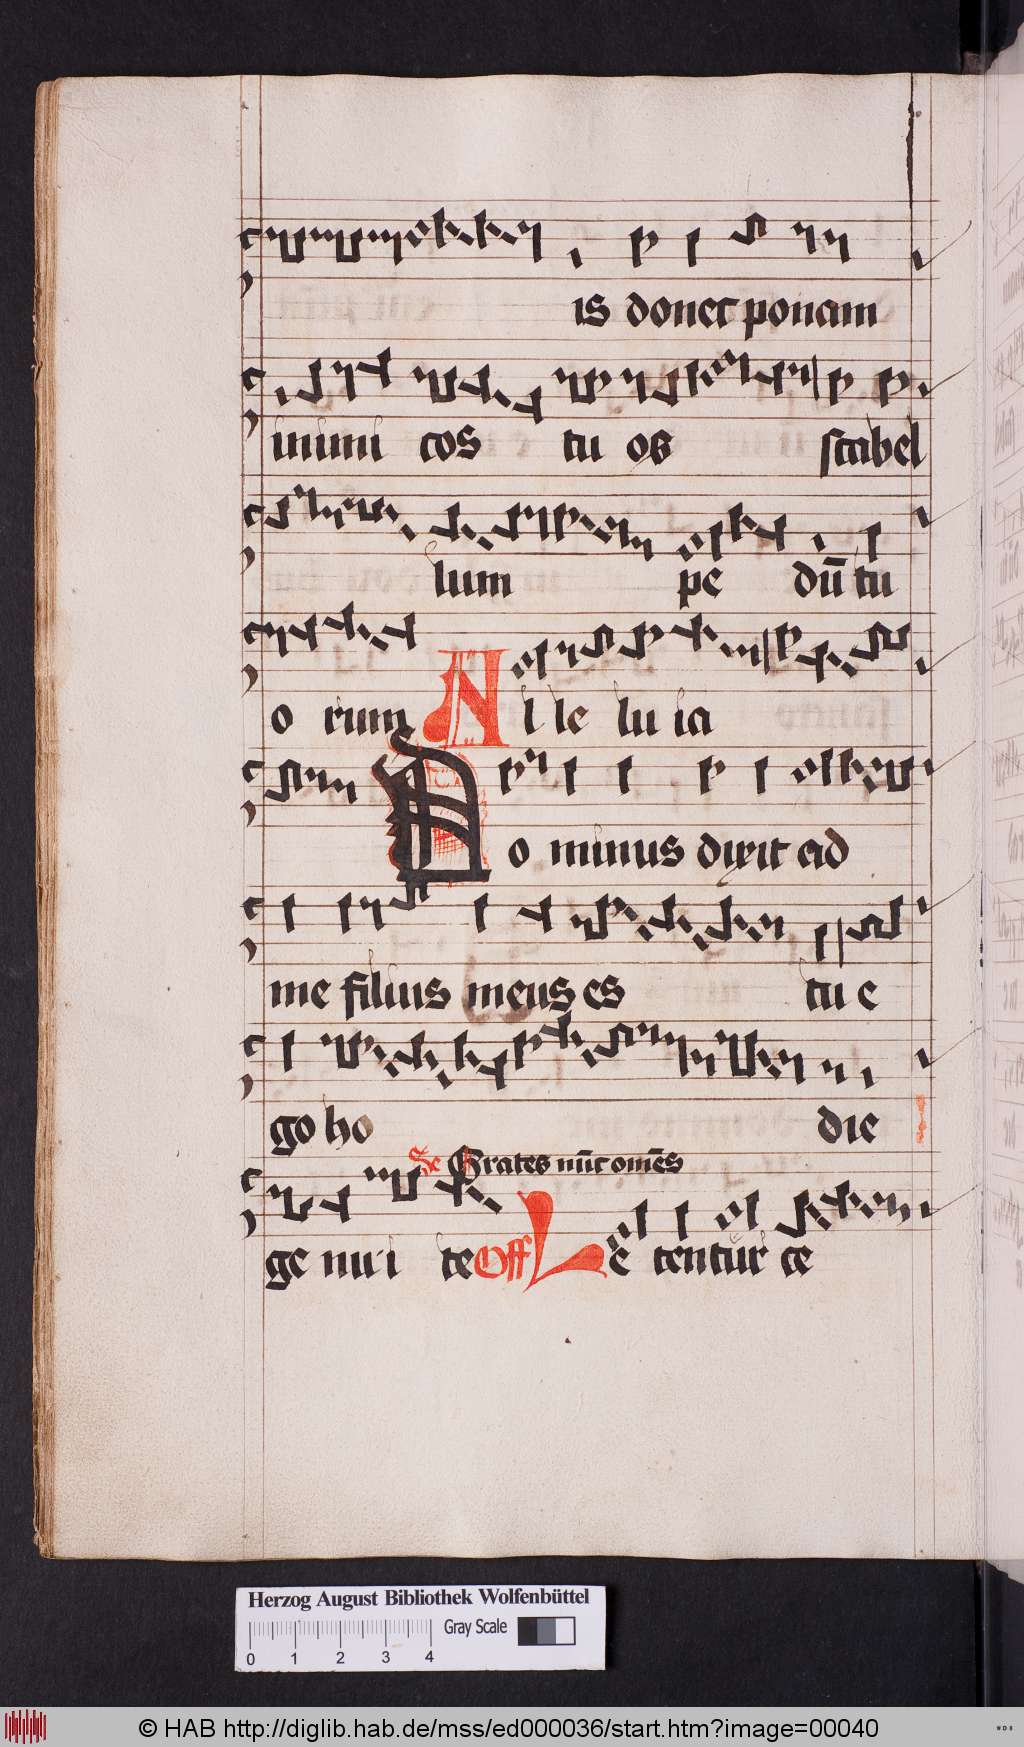 is donec ponam
inimi cos tu os scabel
lum pe dū tu
o rum Al le lu ia
Do minus dixit ad
me filius meus es tu e
go ho die
Se Grates nūc omēs
ge nu i te Off Le tentur ce
Herzog August Bibliothek Wolfenbüttel
Gray Scale
0 1 2 3 4
© HAB http://diglib.hab.de/mss/ed000036/start.htm?image=00040